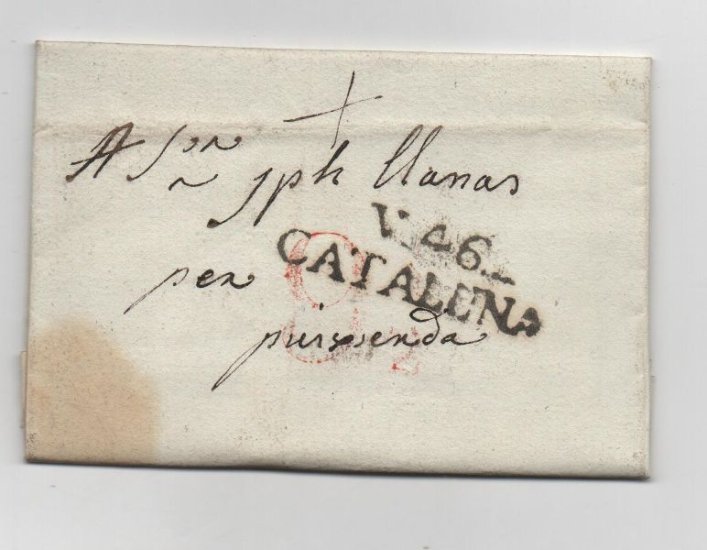 A Sor
n Jph llanas
V. 46.
CATALUÑA
per
puisenda